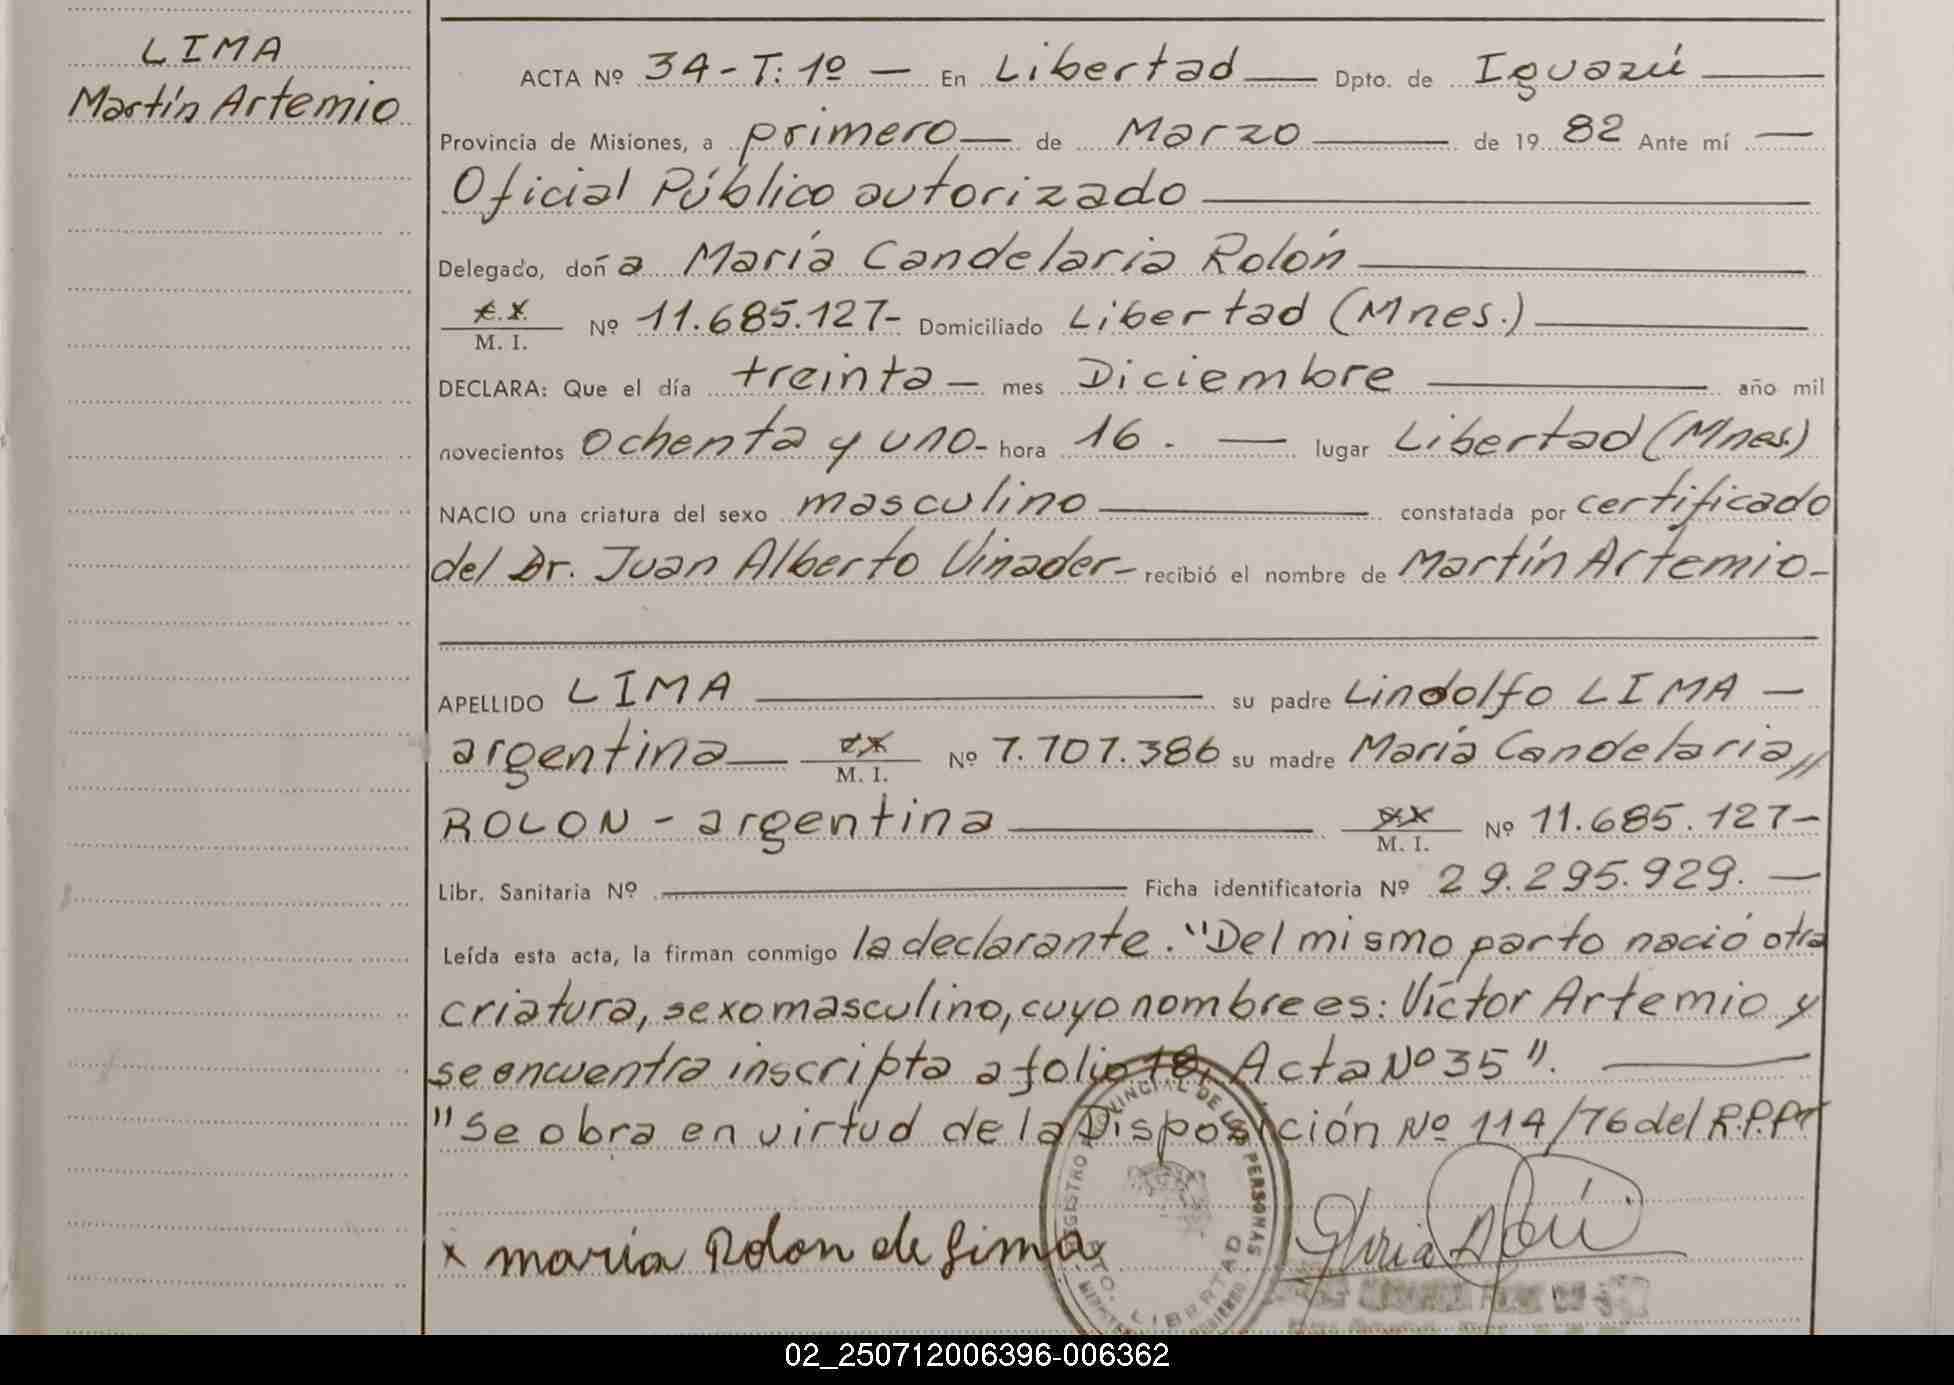 LIMA
Martín Artemio
ACTA Nº 34-T: 1º — En Libertad — Dpto. de Iguazú —
Provincia de Misiones, a primero — de Marzo — de 19 82 Ante mí —
Oficial Público autorizado —
Delegado, doña María Candelaria Rolón —
M. I. Nº 11.685.127- Domiciliado Libertad (Mnes.) —
DECLARA: Que el día treinta — mes Diciembre — año mil
novecientos ochenta y uno- hora 16. — lugar Libertad (Mnes.)
NACIO una criatura del sexo masculino — constatada por certificado
del Dr. Juan Alberto Vinader- recibió el nombre de Martín Artemio-
APELLIDO LIMA — su padre Lindolfo LIMA —
argentina — M. I. Nº 7.707.386 su madre María Candelaria//
ROLON - argentina — M. I. Nº 11.685.127-
Libr. Sanitaria Nº — Ficha identificatoria Nº 29.295.929. —
Leída esta acta, la firman conmigo la declarante. "Del mismo parto nació otra
criatura, sexo masculino, cuyo nombre es: Víctor Artemio y
se encuentra inscripta a folio 18, Acta Nº 35". —
"Se obra en virtud de la Disposición Nº 114/76 del R.P.P"
x maría Rolon de Lima
REGISTRO PROVINCIAL DE LAS PERSONAS
DTO. LIBERTAD
02_250712006396-006362